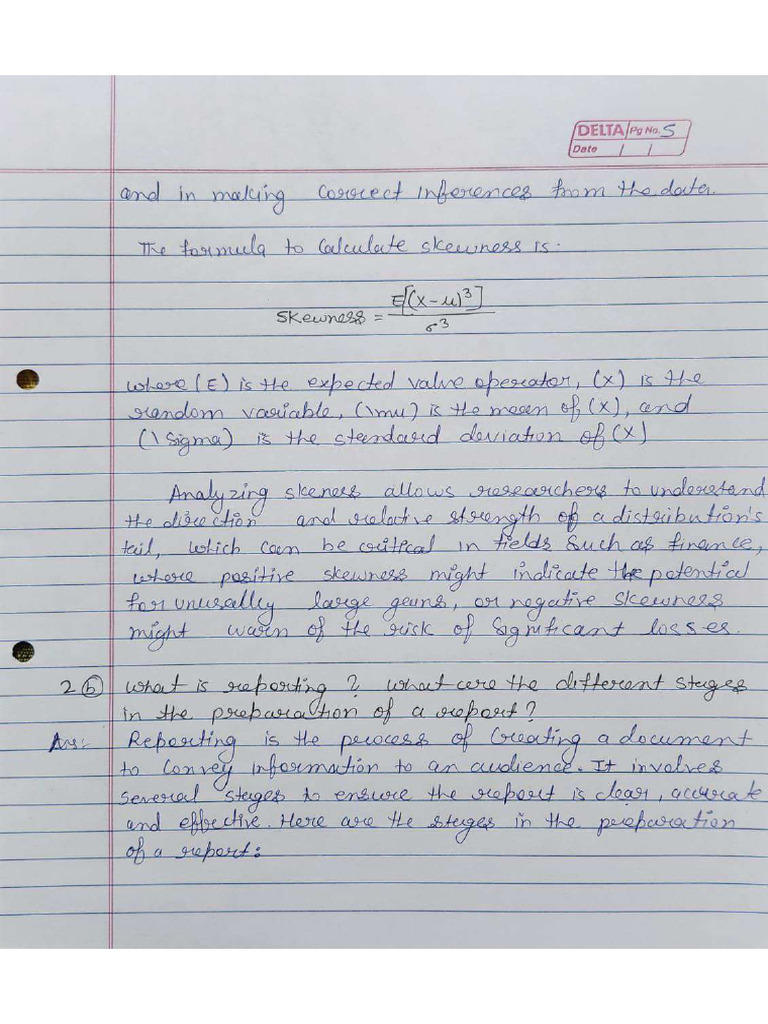 DELTA Pg No. 5
Date / /
and in making correct inferences from the data.
The formula to calculate skewness is:
Skewness = E[(X-μ)³] / σ³
where (E) is the expected value operator, (X) is the
random variable, (\mu) is the mean of (X), and
(\Sigma) is the standard deviation of (X)
Analyzing skeness allows researchers to understand
the direction and relative strength of a distribution's
tail, which can be critical in fields such as finance,
where positive skewness might indicate the potential
for unusally large gains, or negative skewness
might warn of the risk of significant losses.
2 (b) What is reporting? What are the different stages
in the preparation of a report?
Ans:- Reporting is the process of creating a document
to convey information to an audience. It involves
several stages to ensure the report is clear, accurate
and effective. Here are the stages in the preparation
of a report: